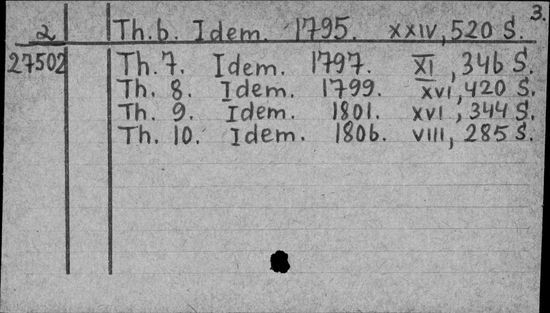 3.
2 Th. 6. Idem. 1795. XXIV, 520 S.
27502 Th. 7. Idem. 1797. XI, 346 S.
Th. 8. Idem. 1799. XVI, 420 S.
Th. 9. Idem. 1801. XVI, 344 S.
Th. 10. Idem. 1806. VIII, 285 S.